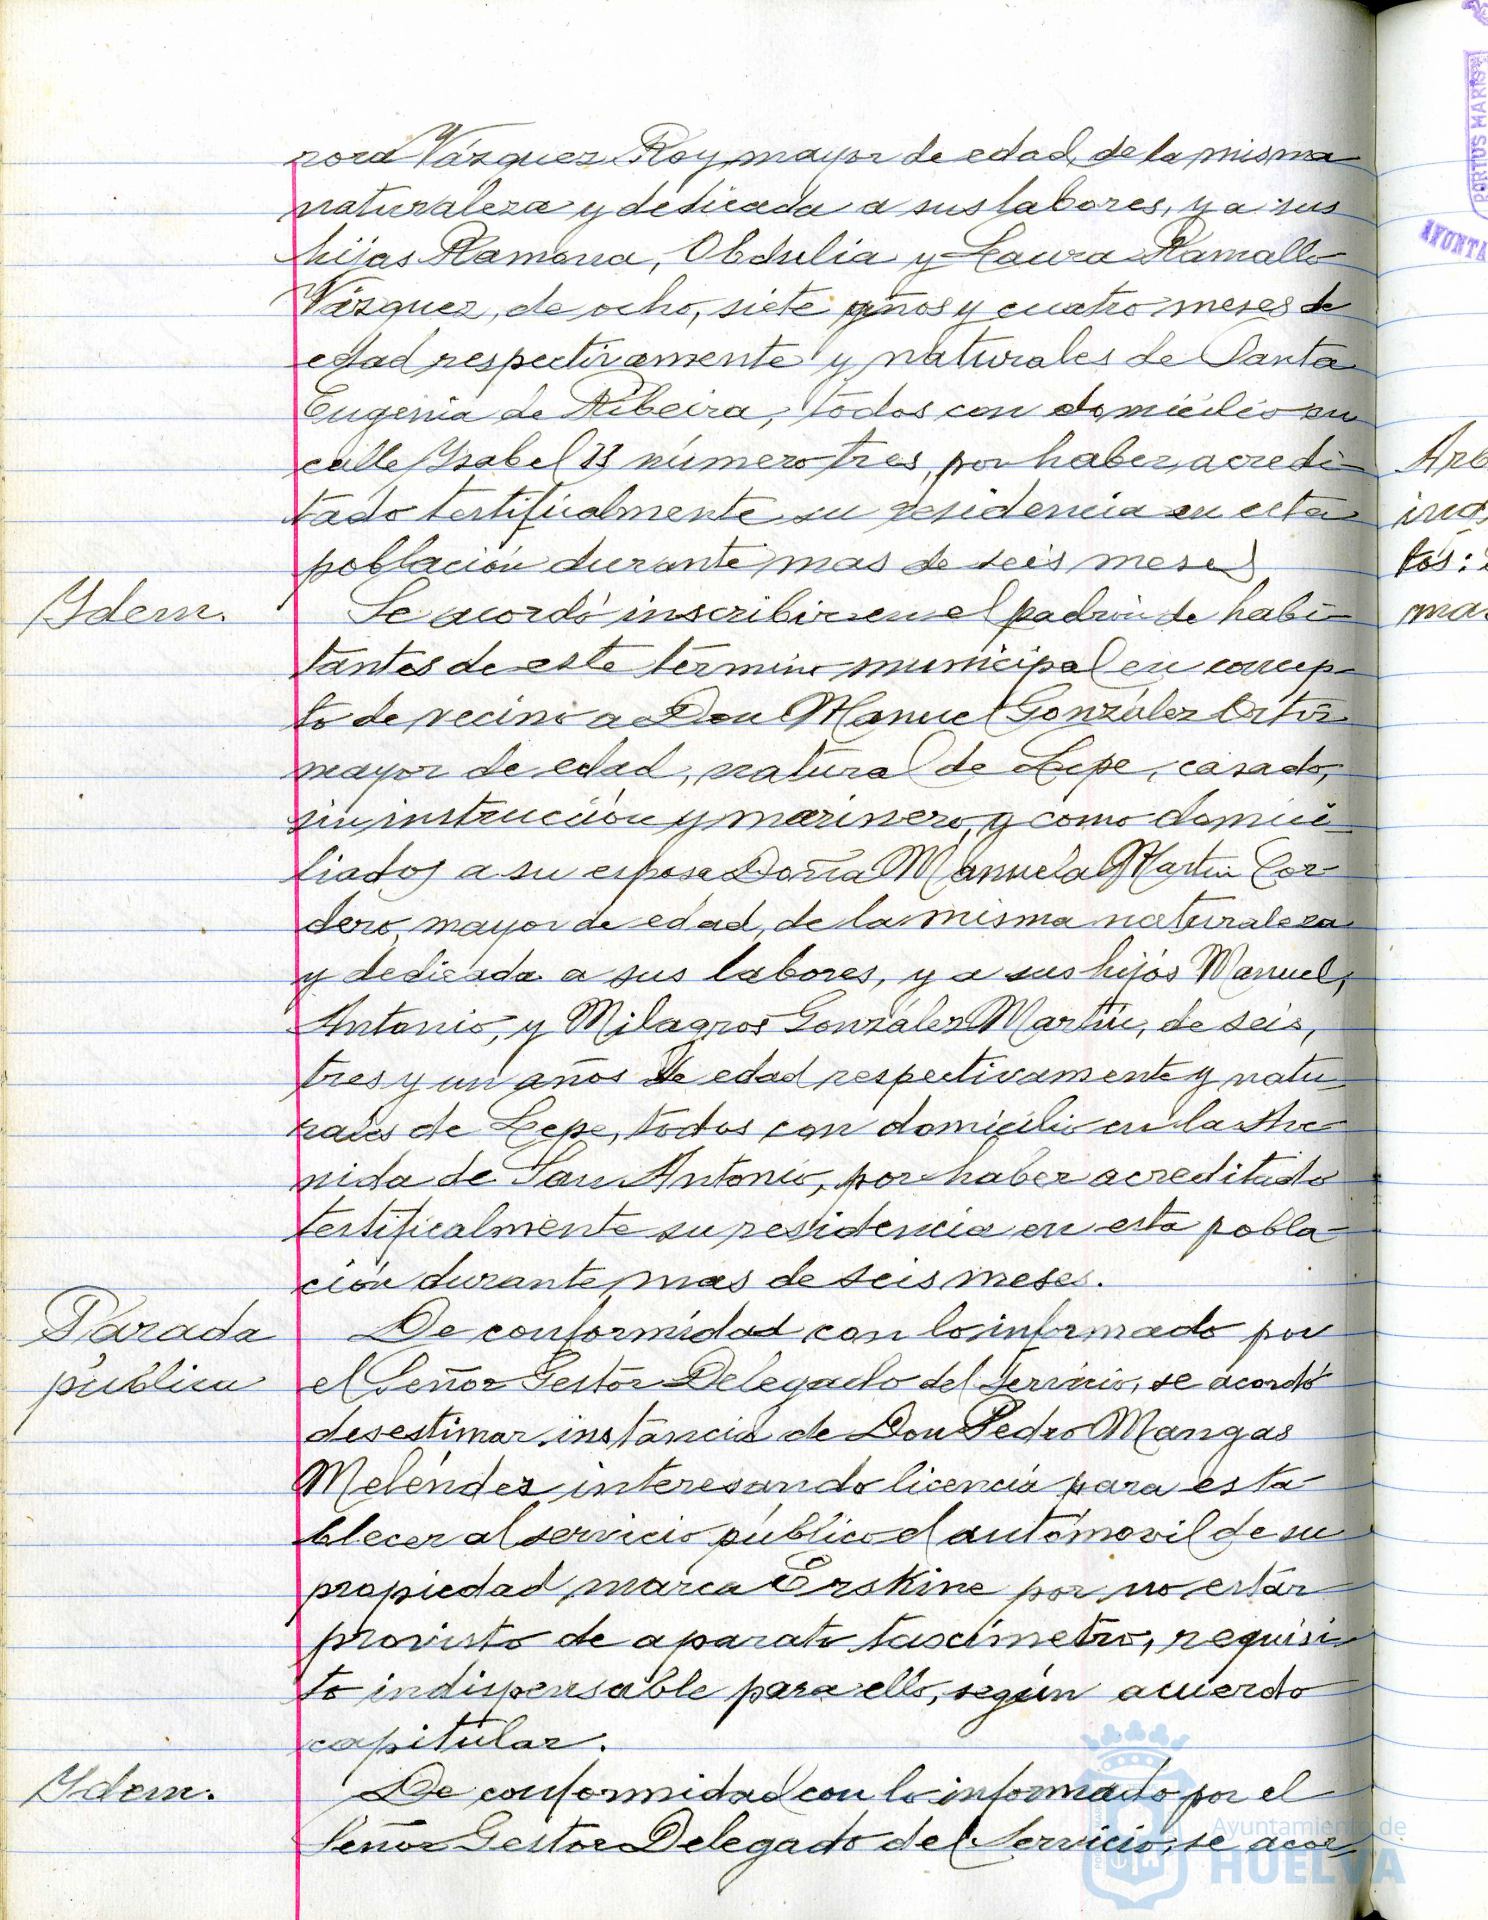 nora Vázquez Roy, mayor de edad, de la misma
naturaleza y dedicada a sus labores, y a sus
hijas Ramona, Obdulia y Laura Ramallo
Vázquez, de ocho, siete años y cuatro meses de
edad respectivamente y naturales de Santa
Eugenia de Ribeira, todos con domicilio en
calle Ysabel II número tres, por haber acredi-
tado testificalmente su residencia en esta
población durante mas de seis meses
Ydem.
Se acordó inscribir en el padrón de habi-
tantes de este término municipal en concep-
to de vecino a Don Manuel González Ortíz
mayor de edad, natural de Lepe, casado,
sin instrucción y marinero, y como domici-
liados a su esposa Doña Manuela Martín Cor-
dero, mayor de edad, de la misma naturaleza
y dedicada a sus labores, y a sus hijos Manuel,
Antonio, y Milagros González Martín, de seis,
tres y un años de edad respectivamente y natu-
rales de Lepe, todos con domicilio en la Ave-
nida de San Antonio, por haber acreditado
testificalmente su residencia en esta pobla-
ción durante mas de seis meses.
Parada
pública
De conformidad con lo informado por
el Señor Gestor Delegado del Servicio, se acordó
desestimar instancia de Don Pedro Mangas
Meléndez interesando licencia para esta-
blecer al servicio público el automovil de su
propiedad marca Erskine por no estár
provisto de aparato tascímetro, requisi-
to indispensable para ello, según acuerdo
capitular.
Ydem.
De conformidad con lo informado por el
Señor Gestor Delegado del Servicio, se acor-
PORTUS MARIS
AYUNTA
tos:
Ayuntamiento de
HUELVA